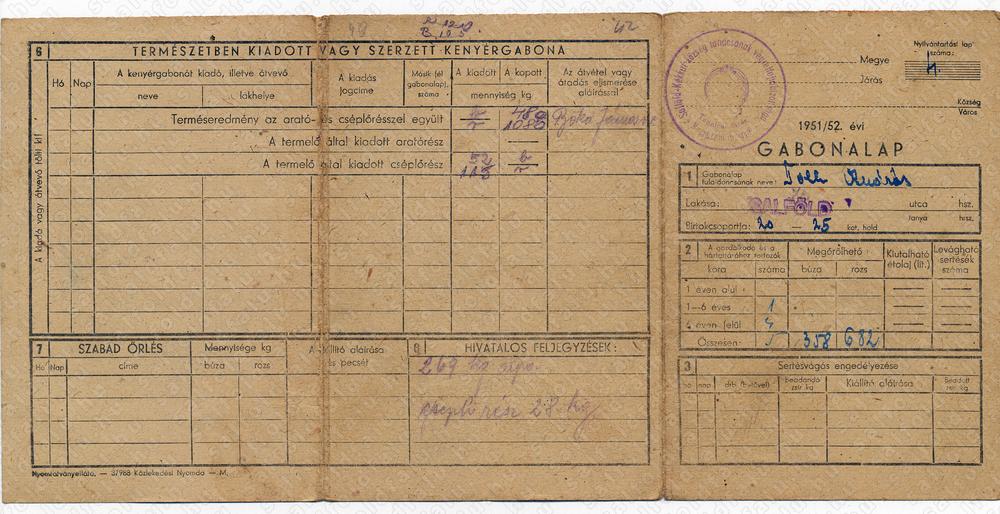 42
6 TERMÉSZETBEN KIADOTT VAGY SZERZETT KENYÉRGABONA
Hó Nap A kenyérgabonát kiadó, illetve átvevő neve lakhelye A kiadás jogcíme Másik fél gabonalap, száma A kiadott A kapott mennyiség kg Az átvétel vagy átadás elismerése aláírással
A kiadó vagy átvevő tölti ki!
Terméseredmény az arató- és cséplőrésszel együtt b r 480 1080
A termelő által kiadott aratórész
A termelő által kiadott cséplőrész 52 113 b r
7 SZABAD ŐRLÉS
Hó Nap címe Mennyisége kg búza rozs A kiállító aláírása és pecsét
8 HIVATALOS FELJEGYZÉSEK:
269 kg
cséplőrész 28 kg
Nyomtatványellátó. — 37988 Közlekedési Nyomda — M.
Nyilvántartási lap száma:
Megye
Járás
Község
Város
1951/52. évi
GABONALAP
1 Gabonalap tulajdonosának neve: Toll András
Lakása: SALFÖLD utca hsz.
tanya hrsz.
Birtokcsoportja: 20 — 25 kat. hold
2 A gazdálkodó és a háztartásához tartozók kora száma Megőrölhető búza rozs Kiutalható étolaj (lit.) Levágható sertések száma
1 éven alul
1—6 éves 1
6 éven felül 4
Összesen: 5 358 682
3 Sertésvágás engedélyezése
hó nap drb (betűvel) Beadandó zsír kg Kiállító aláírása Beadott zsír kg